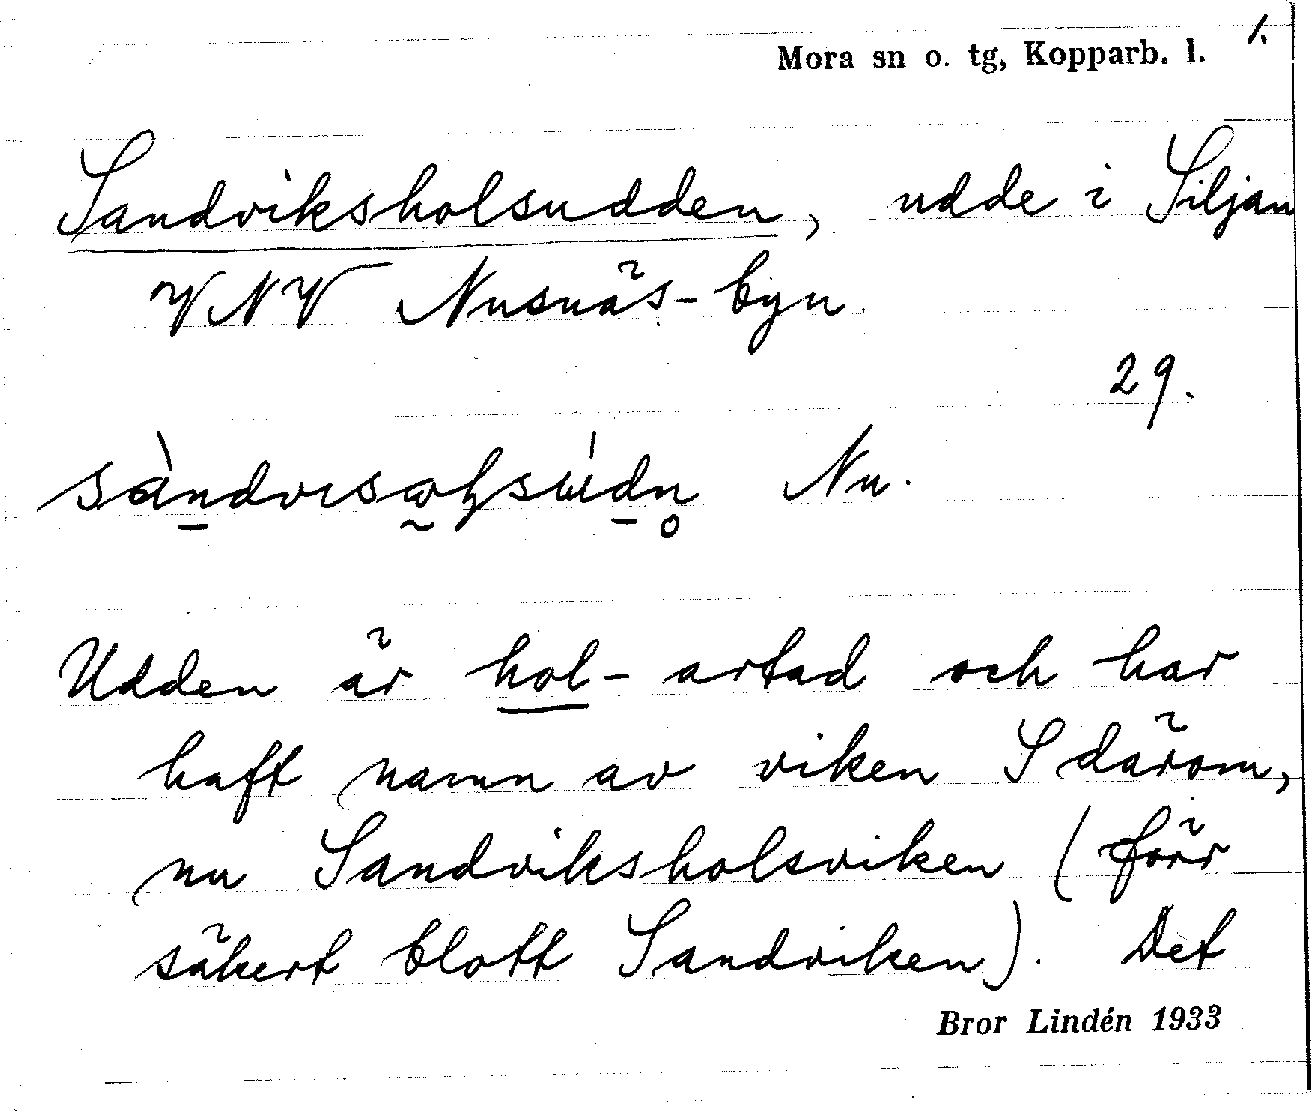 1.
Mora sn o. tg, Kopparb. l.
Sandviksholsudden, udde i Siljan
VNV Nusnäs-byn
29.
Nu.
Udden är hol-artad och har
haft namn av viken S därom,
nu Sandviksholsviken (förr
säkert blott Sandviken). Det
Bror Lindén 1933